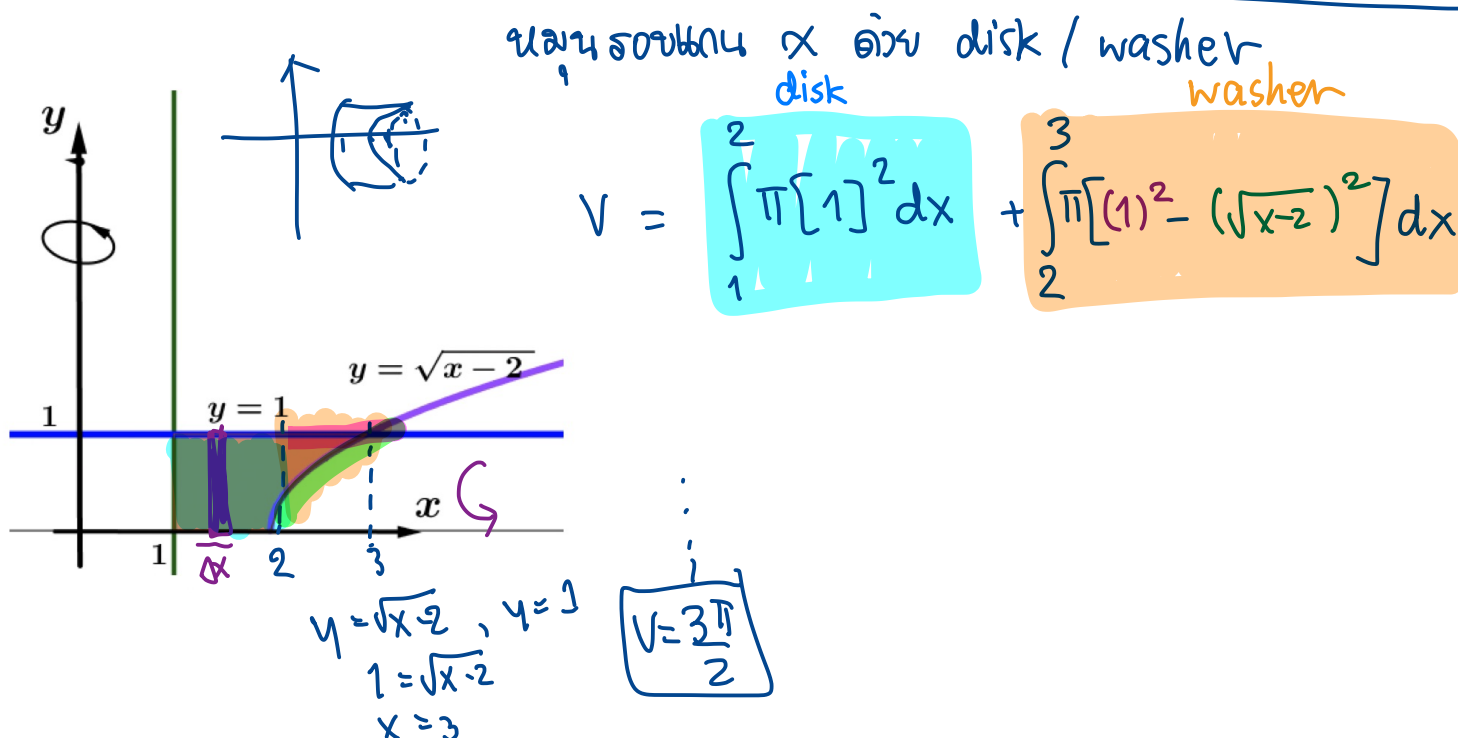 หมุนรอบแกน x ด้วย disk / washer
disk
washer
V = ∫₁² π[1]² dx + ∫₂³ π[(1)² - (√(x-2))²] dx
y
y = √(x − 2)
y = 1
1
x
1
Δx
2
3
y = √(x-2) , y = 1
1 = √(x-2)
x = 3
V = 3π/2